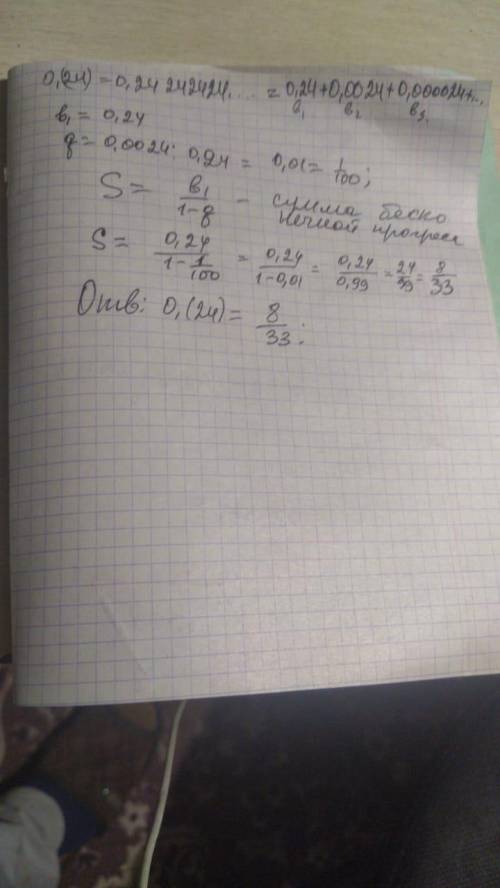 0,(24) = 0,24 242424.... = 0,24+0,0024+0,000024+...
в₁ в₂ в₃
в₁ = 0,24
q = 0,0024 : 0,24 = 0,01 = 1/100;
S = в₁/(1-q) - сумма беско
нечной прогресс
S = 0,24/(1 - 1/100) = 0,24/(1-0,01) = 0,24/0,99 = 24/99 = 8/33
Отв: 0,(24) = 8/33;